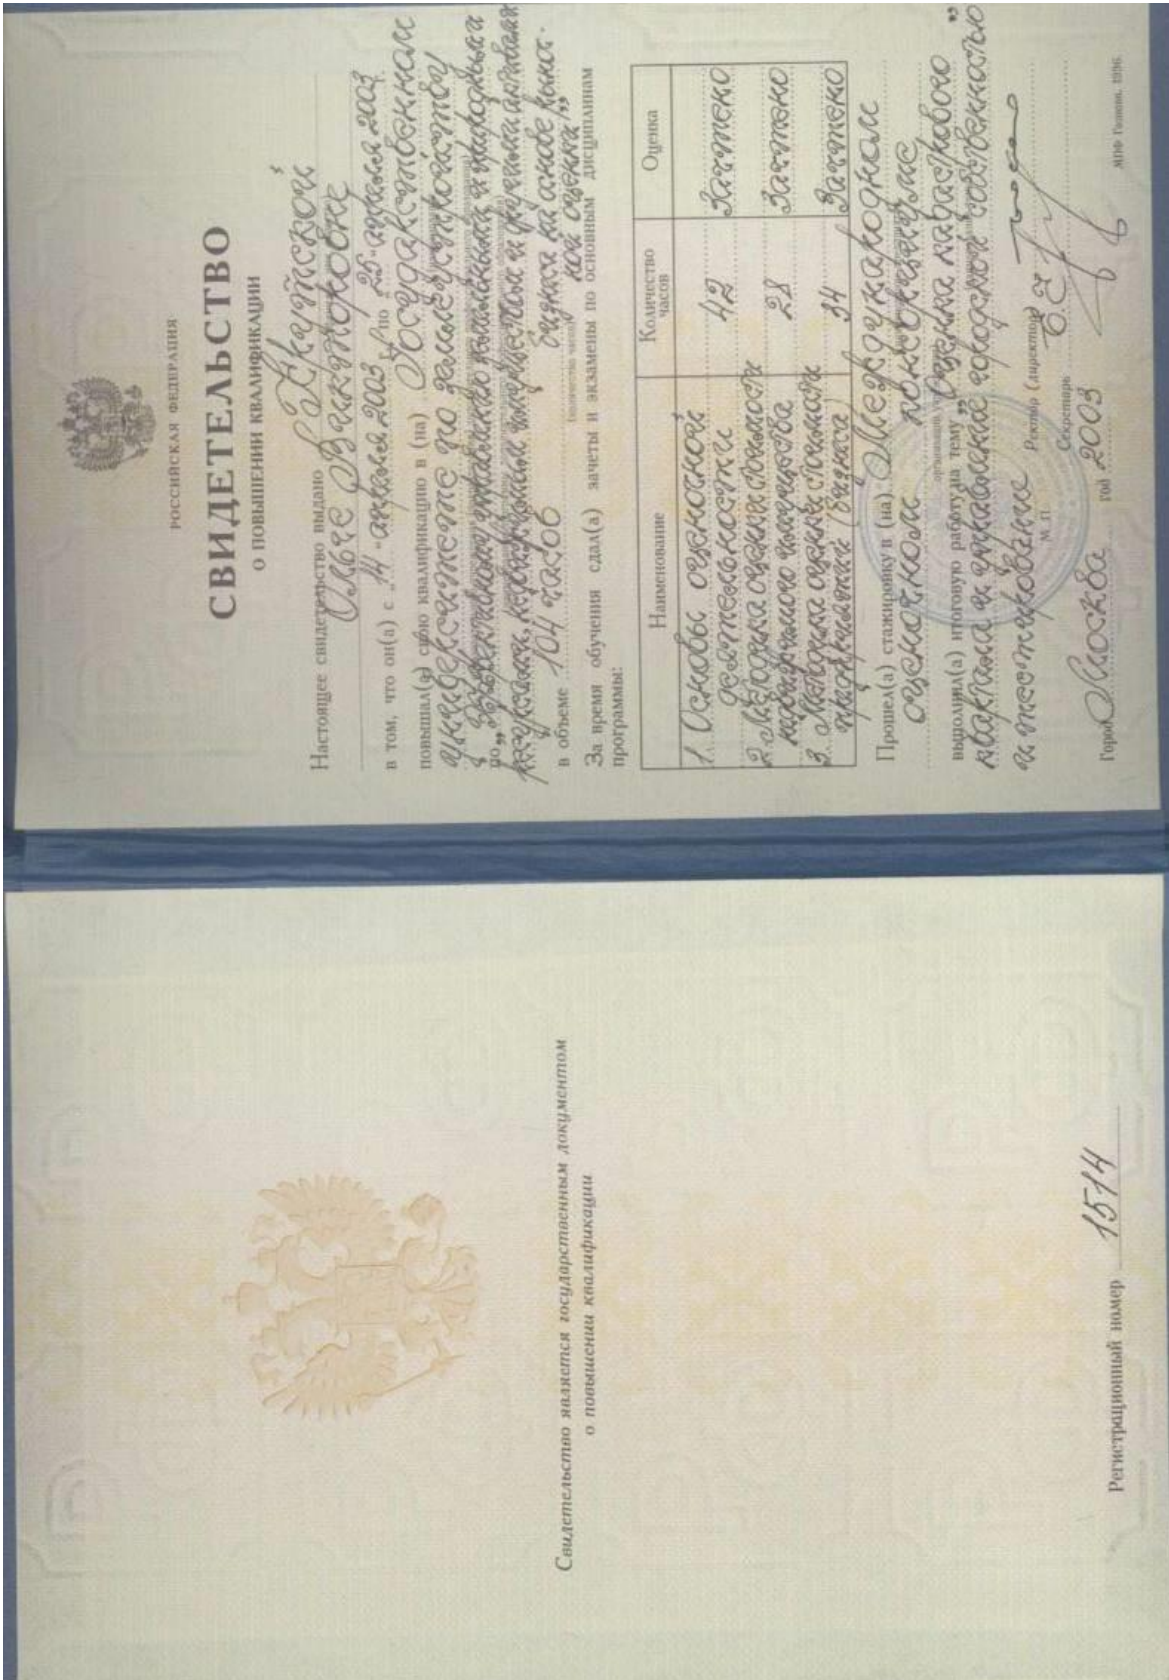 Свидетельство является государственным документом
о повышении квалификации
Регистрационный номер 1514
РОССИЙСКАЯ ФЕДЕРАЦИЯ
СВИДЕТЕЛЬСТВО
О ПОВЫШЕНИИ КВАЛИФИКАЦИИ
Настоящее свидетельство выдано
Ольге Викторовне
в том, что он(а) с „14" апреля 2003 по 25 апреля 2003
повышал(а) свою квалификацию в (на) Государственном
университете по землеустройству
по „Эффективное управление земельными и природными
ресурсами, недвижимым имуществом и другими активами
бизнеса на основе рыноч-
в объеме 104 часов ной оценки"
(количество часов)
За время обучения сдал(а) зачеты и экзамены по основным дисциплинам
программы:
Наименование Количество часов Оценка
1. Основы оценочной
деятельности 42 Зачтено
2. Методика оценки стоимости
недвижимого имущества 28 Зачтено
3. Методика оценки стоимости
предприятий (бизнеса) 34 Зачтено
Прошел(а) стажировку в (на) Международном
оценочном консорциуме
выполнил(а) итоговую работу на тему „Оценка кадастрового
квартала и управление городской собственностью"
и тестирование
М. П. Ректор (директор)
Секретарь
Город Москва год 2003
МПФ Гознака. 1996.